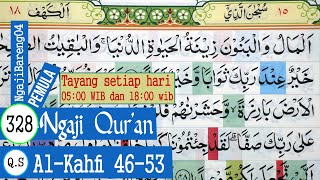 ١٨ الكهف
سبحن الذي ١٥
المال والبنون زينة الحيوة الدنيا والبقيت
خير عند ربك ثوابا
الارض بارزة وحشرنهم
على ربك صفا لقد جئتمونا
NgajiBareng04
PEMULA
Tayang setiap hari
05:00 WIB dan 18:00 wib
328 Ngaji Qur'an
Q.S Al-Kahfi 46-53